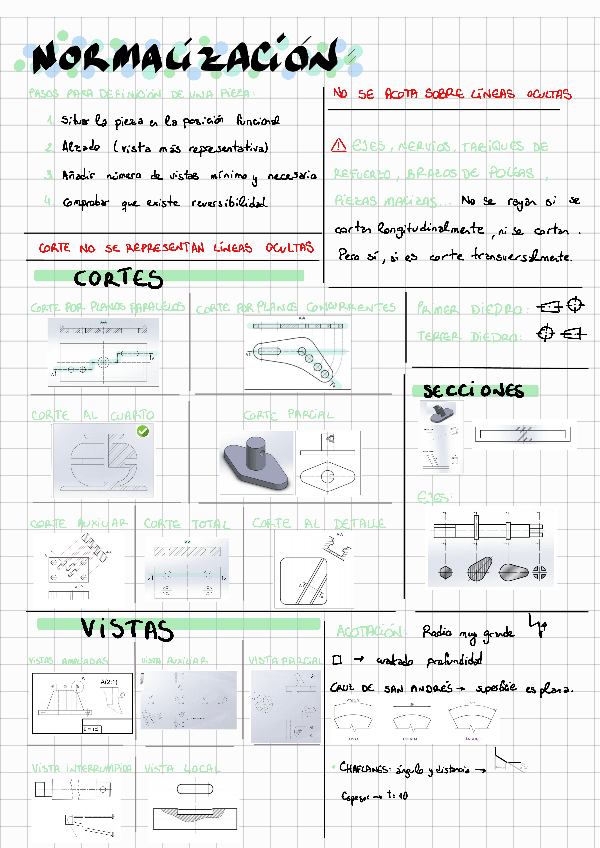 NORMALIZACIÓN
PASOS PARA DEFINICIÓN DE UNA PIEZA:
1. Situar la pieza en la posición funcional
2. Alzado (vista más representativa)
3. Añadir número de vistas mínimo y necesario
4. Comprobar que existe reversibilidad
CORTE NO SE REPRESENTAN LÍNEAS OCULTAS
NO SE ACOTA SOBRE LÍNEAS OCULTAS
EJES, NERVIOS, TABIQUES DE
REFUERZO, BRAZOS DE POLEAS,
PIEZAS MACIZAS... No se rayan si se
cortan longitudinalmente, ni se cortan.
Pero sí, si es corte transversalmente.
CORTES
CORTE POR PLANOS PARALELOS
CORTE POR PLANOS CONCURRENTES
CORTE AL CUARTO
CORTE PARCIAL
CORTE AUXILIAR
CORTE TOTAL
CORTE AL DETALLE
PRIMER DIEDRO:
TERCER DIEDRO:
SECCIONES
EJES:
VISTAS
VISTAS AMPLIADAS
VISTA AUXILIAR
VISTA PARCIAL
A(2:1)
VISTA INTERRUMPIDA
VISTA LOCAL
ACOTACIÓN: Radio muy grande
□ → cuadrado profundidad
CRUZ DE SAN ANDRÉS → superficie es plana.
• CHAFLANES: ángulo y distancia →
Espesor → t=10